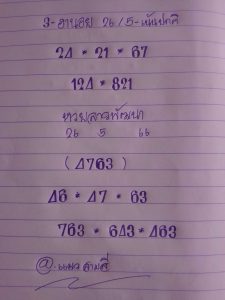 3-ฮานอย 26/5-
24 * 21 * 67
124 * 821
หวยลาวพัฒนา
26 5 66
(4763)
46 * 47 * 63
763 * 643 * 463
@.แมว สามสี